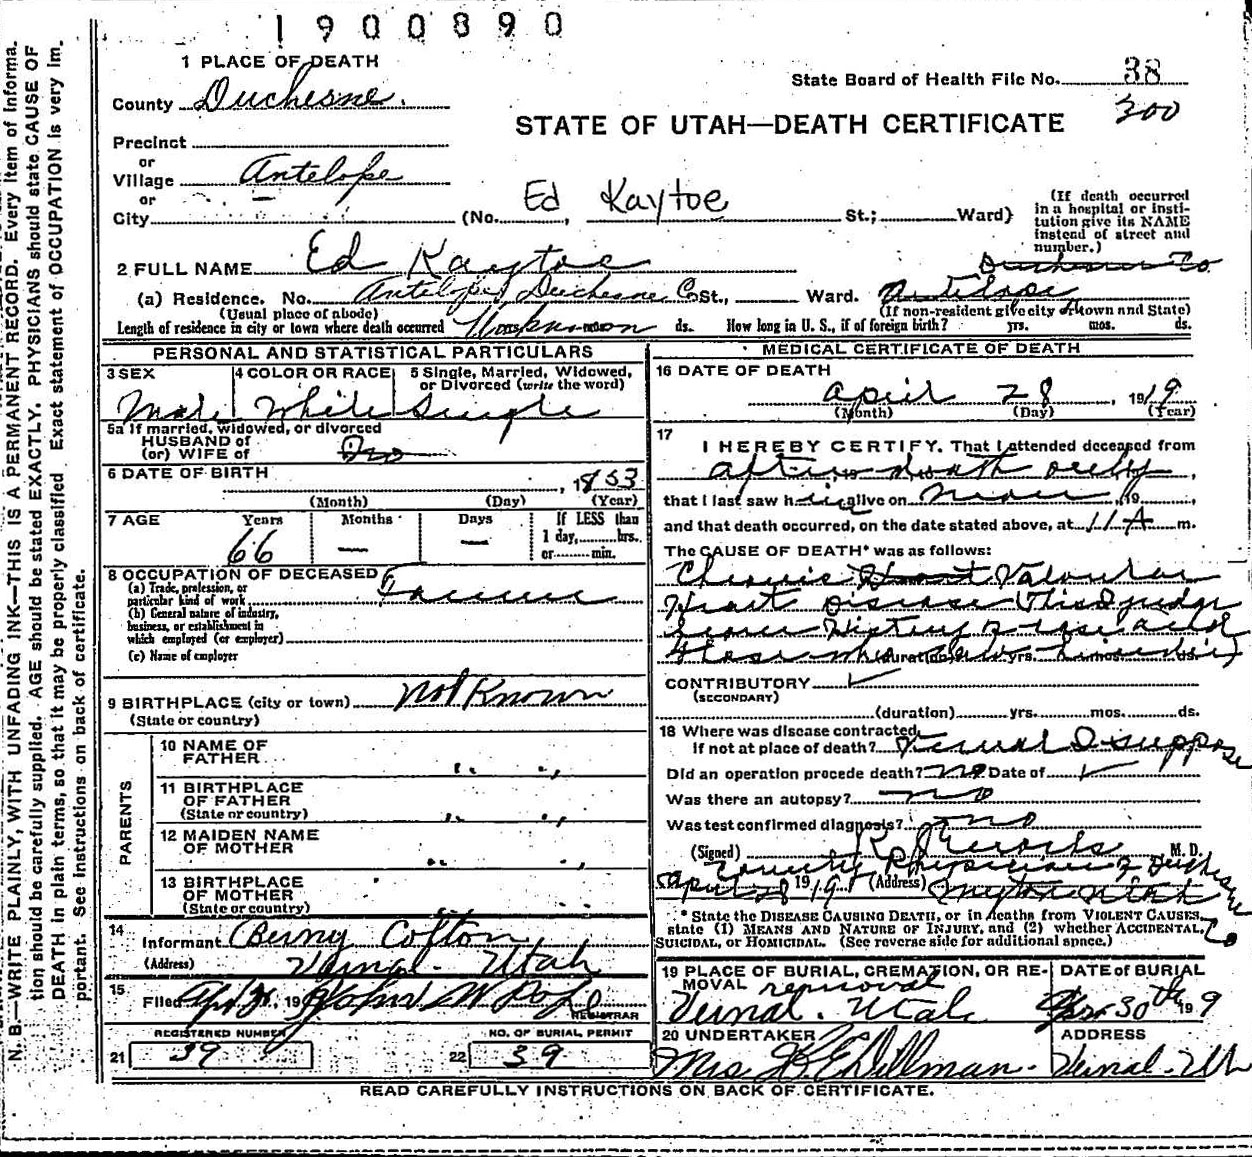 1900890
1 PLACE OF DEATH
State Board of Health File No. 38
County Duchesne.
300
STATE OF UTAH—DEATH CERTIFICATE
Precinct
or
Village Antelope
or
City (No. Ed Kaytoe St.; Ward)
(If death occurred
in a hospital or insti-
tution give its NAME
instead of street and
number.)
2 FULL NAME Ed Kaytoe
Duchesne Co
(a) Residence. No. Antelope, Duchesne Co St., Ward. Antelope
(Usual place of abode) (If non-resident give city or town and State)
Length of residence in city or town where death occurred Unknown ds. How long in U. S., if of foreign birth? yrs. mos. ds.
PERSONAL AND STATISTICAL PARTICULARS
3 SEX 4 COLOR OR RACE 5 Single, Married, Widowed,
or Divorced (write the word)
Male White Single
5a If married, widowed, or divorced
HUSBAND of
(or) WIFE of
6 DATE OF BIRTH
, 1853
(Month) (Day) (Year)
7 AGE Years Months Days If LESS than
1 day, hrs.
or min.
66 — —
8 OCCUPATION OF DECEASED
(a) Trade, profession, or
particular kind of work Farmer
(b) General nature of industry,
business, or establishment in
which employed (or employer)
(c) Name of employer
9 BIRTHPLACE (city or town) Not Known
(State or country)
PARENTS
10 NAME OF
FATHER " "
11 BIRTHPLACE
OF FATHER
(State or country) " "
12 MAIDEN NAME
OF MOTHER " "
13 BIRTHPLACE
OF MOTHER
(State or country)
14
Informant Berny Colton
(Address) Vernal. Utah
15
Filed 19 John W
REGISTRAR
REGISTERED NUMBER NO. OF BURIAL PERMIT
21 39 22 39
MEDICAL CERTIFICATE OF DEATH
16 DATE OF DEATH
April 28, 1919
(Month) (Day) (Year)
17
I HEREBY CERTIFY, That I attended deceased from
after death only,
that I last saw h alive on 19
and that death occurred, on the date stated above, at 11 A m.
The CAUSE OF DEATH* was as follows:
Chronic Heart Valvular
Heart Disease (This I judge
History
those who saw him die)
(duration) yrs. mos. ds.
CONTRIBUTORY
(SECONDARY)
(duration) yrs. mos. ds.
18 Where was disease contracted,
if not at place of death? Vernal I suppose
Did an operation precede death? no Date of
Was there an autopsy? no
Was test confirmed diagnosis? no
(Signed) M. D.
County Physician of Duchesne
Co
April 28 1919 (Address) Myton Utah
* State the DISEASE CAUSING DEATH, or in deaths from VIOLENT CAUSES,
state (1) MEANS AND NATURE OF INJURY, and (2) whether ACCIDENTAL,
SUICIDAL, OR HOMICIDAL. (See reverse side for additional space.)
19 PLACE OF BURIAL, CREMATION, OR RE-
MOVAL removal
Vernal. Utah
DATE of BURIAL
Apr 30th 1919
20 UNDERTAKER
Mrs Dillman.
ADDRESS
Vernal. Ut
READ CAREFULLY INSTRUCTIONS ON BACK OF CERTIFICATE.
N. B.—WRITE PLAINLY, WITH UNFADING INK—THIS IS A PERMANENT RECORD. Every item of informa-
tion should be carefully supplied. AGE should be stated EXACTLY. PHYSICIANS should state CAUSE OF
DEATH in plain terms, so that it may be properly classified. Exact statement of OCCUPATION is very im-
portant. See instructions on back of certificate.